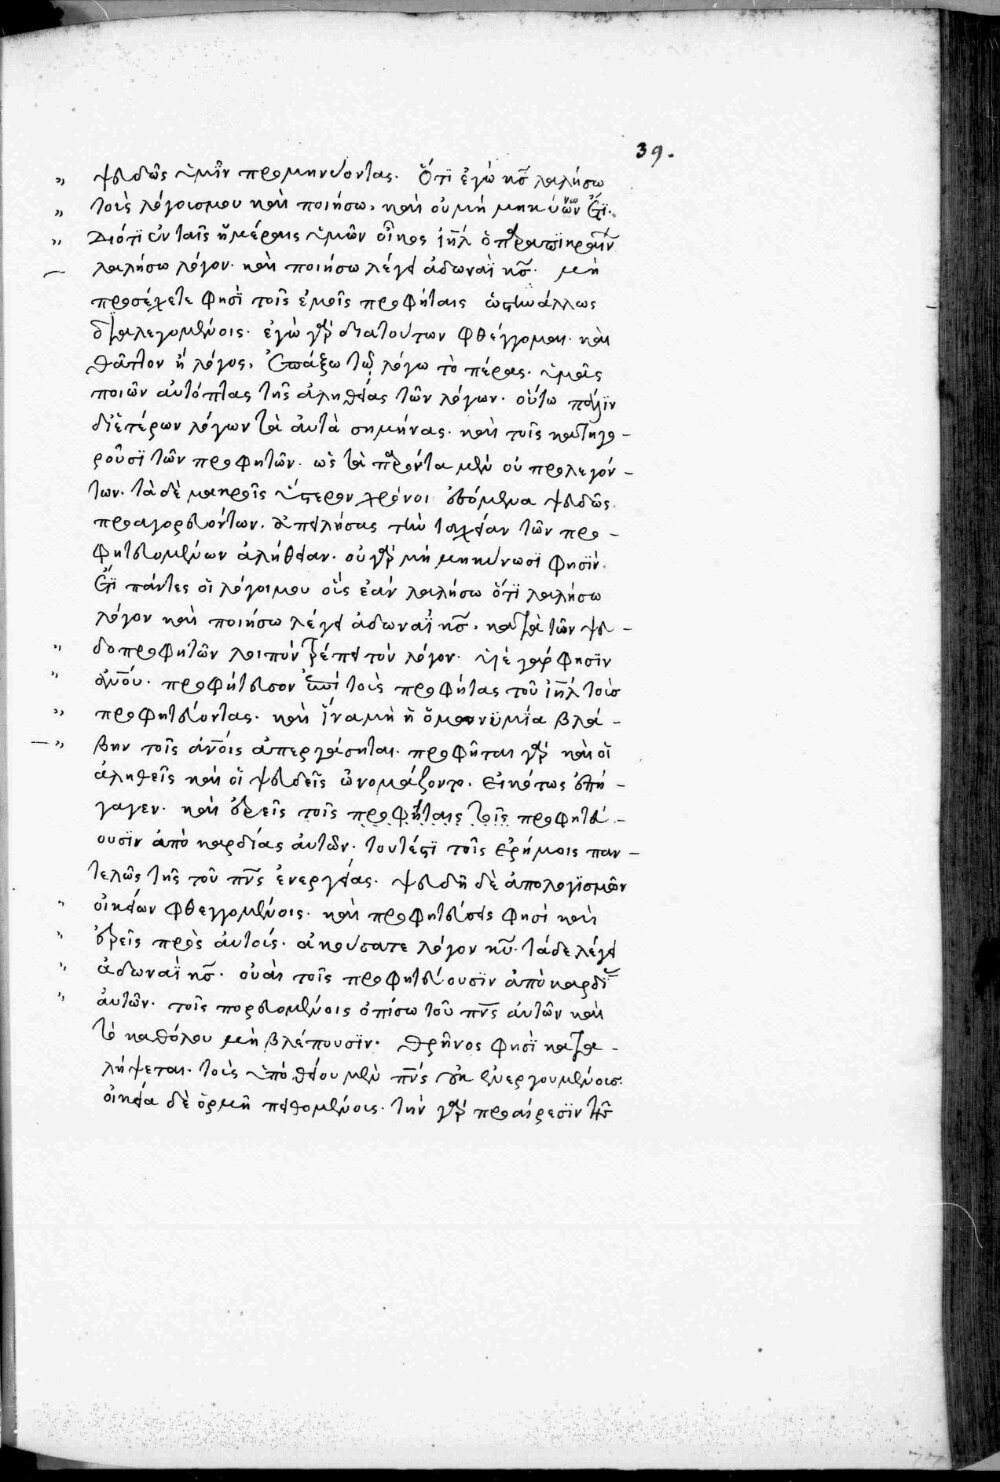 39.
ψευδῶς ὑμῖν προμηνύοντας. Ὅτι ἐγὼ κ̅ς̅ λαλήσω
τοὺς λόγους μου καὶ ποιήσω, καὶ οὐ μὴ μηκύνων ἔτι.
Διότι ἐν ταῖς ἡμέραις ὑμῶν οἶκος ἰ̅η̅λ̅ ὁ παραπικραίνων
λαλήσω λόγον. καὶ ποιήσω λέγει ἀδωναῒ κ̅ς̅. μὴ
προσέχετε φησὶ τοῖς ἐμοῖς προφήταις ὡς ἄλλως
διαλεγομένοις. ἐγὼ γὰρ διὰ τούτων φθέγγομαι. καὶ
θᾶττον ἢ λόγος, ἐπάξω τῷ λόγω τὸ πέρας. ὑμᾶς
ποιῶν αὐτόπτας τῆς ἀληθείας τῶν λόγων. οὕτω πάλιν
δι' ἑτέρων λόγων τὰ αὐτὰ σημήνας. καὶ τοῖς κατηγο-
ροῦσι τῶν προφητῶν. ὡς τὰ παρόντα μὲν οὐ προλεγόν-
των. τὰ δὲ μακροῖς ὕστερον χρόνοι ἐσόμενα ψευδῶς
προαγορευόντων. ἀπειλήσας τὴν ταχεῖαν τῶν προ-
φητευομένων ἀλήθειαν. οὐ γὰρ μὴ μηκύνωσι φησὶν.
ἔτι πάντες οἱ λόγοι μου οὓς ἐὰν λαλήσω ὅτι λαλήσω
λόγον καὶ ποιήσω λέγει ἀδωναῒ κ̅ς̅. κατὰ τῶν ψευ-
δοπροφητῶν λοιπὸν τρέπει τὸν λόγον. υἱὲ γάρ φησιν
ἀν̅ο̅υ̅. προφήτευσον ἐπὶ τοὺς προφήτας τοῦ ἰ̅η̅λ̅ τοὺς
προφητεύοντας. καὶ ἵνα μὴ ἡ ὁμωνυμία βλά-
βην τοῖς ἀν̅ο̅ι̅ς ἀπεργάσηται. προφῆται γὰρ καὶ οἱ
ἀληθεῖς καὶ οἱ ψευδεῖς ὠνομάζοντο. εἰκότως ἐπή-
γαγεν. καὶ ἐρεῖς τοῖς προφήταις τοῖς προφητεύ-
ουσιν ἀπὸ καρδίας αὐτῶν. τουτέστι τοῖς ἐρήμοις παν-
τελῶς τῆς τοῦ π̅ν̅ς̅ ἐνεργείας. ψευδῆ δὲ ἀπολογισμῶν
οἰκείων φθεγγομένοις. καὶ προφητεύσεις φησὶ καὶ
ἐρεῖς πρὸς αὐτούς. ἀκούσατε λόγον κ̅υ̅. τάδε λέγει
ἀδωναῒ κ̅ς̅. οὐαὶ τοῖς προφητεύουσιν ἀπὸ καρδίας
αὐτῶν. τοῖς πορευομένοις ὀπίσω τοῦ π̅ν̅ς̅ αὐτῶν καὶ
τὸ καθόλου μὴ βλέπουσιν. θρῆνος φησὶ κατα-
λήψεται. τοὺς ὑπὸ θείου μὲν π̅ν̅ς̅ οὐκ ἐνεργουμένους.
οἰκεία δὲ ὁρμῇ πειθομένοις. τὴν γὰρ προαίρεσιν τῆς